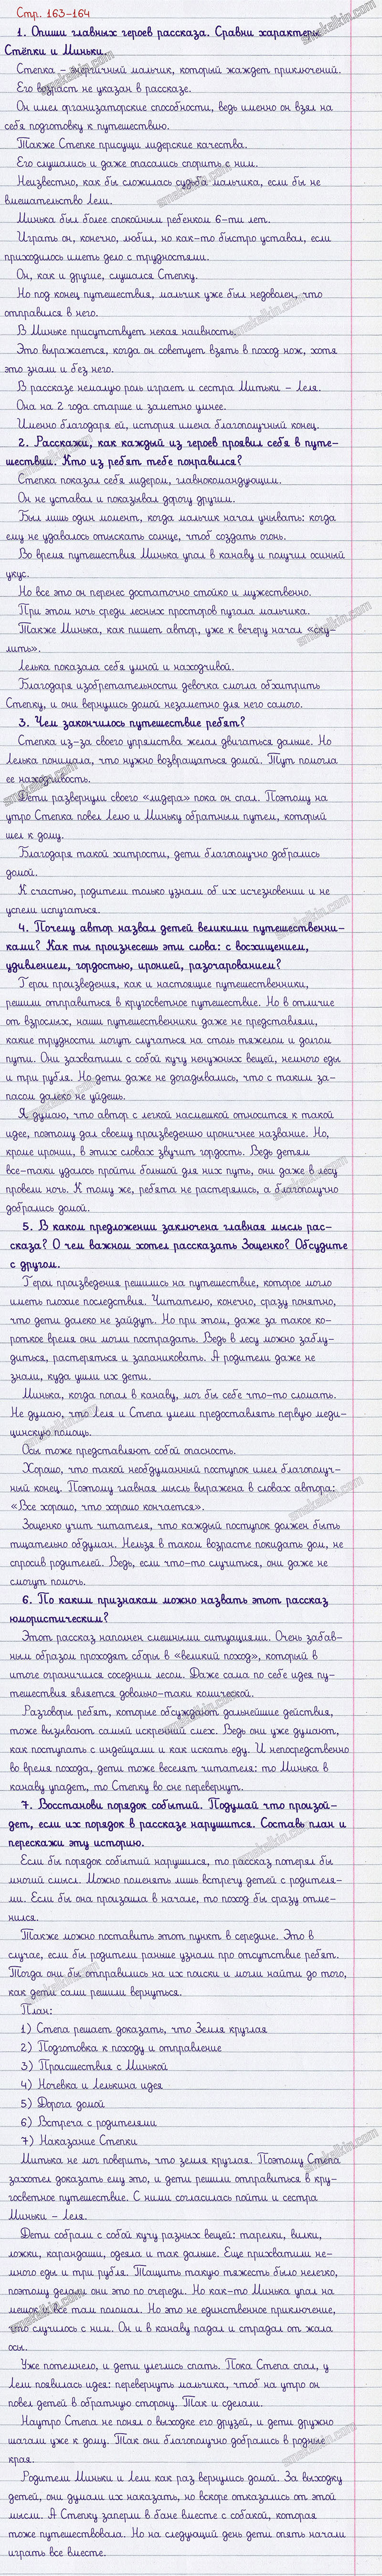 Стр. 163-164
1. Опиши главных героев рассказа. Сравни характеры
Стёпки и Миньки.
Степка – энергичный мальчик, который жаждет приключений.
Его возраст не указан в рассказе.
Он имел организаторские способности, ведь именно он взял на
себя подготовку к путешествию.
Также Степке присущи лидерские качества.
Его слушались и даже опасались спорить с ним.
Неизвестно, как бы сложилась судьба мальчика, если бы не
вмешательство Лели.
Минька был более спокойным ребенком 6-ти лет.
Играть он, конечно, любил, но как-то быстро уставал, если
приходилось иметь дело с трудностями.
Он, как и другие, слушался Степку.
Но под конец путешествия, мальчик уже был недоволен, что
отправился в него.
В Миньке присутствует некая наивность.
Это выражается, когда он советует взять в поход нож, хотя
это знали и без него.
В рассказе немалую роль играет и сестра Митьки – Леля.
Она на 2 года старше и заметно умнее.
Именно благодаря ей, история имела благополучный конец.
2. Расскажи, как каждый из героев проявил себя в путе-
шествии. Кто из ребят тебе понравился?
Степка показал себя лидером, главнокомандующим.
Он не уставал и показывал дорогу другим.
Был лишь один момент, когда мальчик начал унывать: когда
ему не удавалось отыскать солнце, чтоб создать огонь.
Во время путешествия Минька упал в канаву и получил осиный
укус.
Но все это он перенес достаточно стойко и мужественно.
При этом ночь среди лесных просторов пугала мальчика.
Также Минька, как пишет автор, уже к вечеру начал «ску-
лить».
Лелька показала себя умной и находчивой.
Благодаря изобретательности девочка смогла обхитрить
Степку, и они вернулись домой незаметно для него самого.
3. Чем закончилось путешествие ребят?
Степка из-за своего упрямства желал двигаться дальше. Но
Лелька понимала, что нужно возвращаться домой. Тут помогла
ее находчивость.
Дети развернули своего «лидера» пока он спал. Поэтому на
утро Степка повел Лелю и Миньку обратным путем, который
шел к дому.
Благодаря такой хитрости, дети благополучно добрались
домой.
К счастью, родители только узнали об их исчезновении и не
успели испугаться.
4. Почему автор назвал детей великими путешественни-
ками? Как ты произнесешь эти слова: с восхищением,
удивлением, гордостью, иронией, разочарованием?
Герои произведения, как и настоящие путешественники,
решили отправиться в кругосветное путешествие. Но в отличие
от взрослых, наши путешественники даже не представляли,
какие трудности могут случаться на столь тяжелом и долгом
пути. Они захватили с собой кучу ненужных вещей, немного еды
и три рубля. Но дети даже не догадывались, что с таким за-
пасом далеко не уйдешь.
Я думаю, что автор с легкой насмешкой относится к такой
идее, поэтому дал своему произведению ироничнее название. Но,
кроме иронии, в этих словах звучит гордость. Ведь детям
все-таки удалось пройти большой для них путь, они даже в лесу
провели ночь. К тому же, ребята не растерялись, а благополучно
добрались домой.
5. В каком предложении заключена главная мысль рас-
сказа? О чем важном хотел рассказать Зощенко? Обсудите
с другом.
Герои произведения решились на путешествие, которое могло
иметь плохие последствия. Читателю, конечно, сразу понятно,
что дети далеко не зайдут. Но при этом, даже за такое ко-
роткое время они могли пострадать. Ведь в лесу можно заблу-
диться, растеряться и запаниковать. А родители даже не
знали, куда ушли их дети.
Минька, когда попал в канаву, мог бы себе что-то сломать.
Не думаю, что Леля и Степа умели предоставлять первую меди-
цинскую помощь.
Осы тоже представляют собой опасность.
Хорошо, что такой необдуманный поступок имел благополуч-
ный конец. Поэтому главная мысль выражена в словах автора:
«Все хорошо, что хорошо кончается».
Зощенко учит читателя, что каждый поступок должен быть
тщательно обдуман. Нельзя в таком возрасте покидать дом, не
спросив родителей. Ведь, если что-то случиться, они даже не
смогут помочь.
6. По каким признакам можно назвать этот рассказ
юмористическим?
Этот рассказ наполнен смешными ситуациями. Очень забав-
ным образом проходят сборы в «великий поход», который в
итоге ограничился соседним лесом. Даже сама по себе идея пу-
тешествия является довольно-таки комической.
Разговоры ребят, которые обсуждают дальнейшие действия,
тоже вызывают самый искренний смех. Ведь они уже думают,
как поступать с индейцами и как искать еду. И непосредственно
во время похода, дети тоже веселят читателя: то Минька в
канаву упадет, то Степку во сне перевернут.
7. Восстанови порядок событий. Подумай что произой-
дет, если их порядок в рассказе нарушится. Составь план и
перескажи эту историю.
Если бы порядок событий нарушился, то рассказ потерял бы
многий смысл. Можно поменять лишь встречу детей с родителя-
ми. Если бы она произошла в начале, то поход бы сразу отме-
нился.
Также можно поставить этот пункт в середине. Это в
случае, если бы родители раньше узнали про отсутствие ребят.
Тогда они бы отправились на их поиски и могли найти до того,
как дети сами решили вернуться.
План:
1) Степа решает доказать, что Земля круглая
2) Подготовка к походу и отправление
3) Происшествия с Минькой
4) Ночевка и Лелькина идея
5) Дорога домой
6) Встреча с родителями
7) Наказание Степки
Митька не мог поверить, что земля круглая. Поэтому Степа
захотел доказать ему это, и дети решили отправиться в кру-
госветное путешествие. С ними согласилась пойти и сестра
Миньки – Леля.
Дети собрали с собой кучу разных вещей: тарелки, вилки,
ложки, карандаши, одеяла и так дальше. Еще прихватили не-
много еды и три рубля. Тащить такую тяжесть было нелегко,
поэтому делали они это по очереди. Но как-то Минька упал на
мешок и все там поломал. Но это не единственное приключение,
что случилось с ним. Он и в канаву падал и страдал от жала
осы.
Уже потемнело, и дети улеглись спать. Пока Степа спал, у
Лели появилась идея: перевернуть мальчика, чтоб на утро он
повел детей в обратную сторону. Так и сделали.
Наутро Степа не понял о выходке его друзей, и дети дружно
шагали уже к дому. Так они благополучно добрались в родные
края.
Родители Миньки и Лели как раз вернулись домой. За выходку
детей, они думали их наказать, но вскоре отказались от этой
мысли. А Степку заперли в бане вместе с собакой, которая
тоже путешествовала. Но на следующий день дети опять начали
играть все вместе.